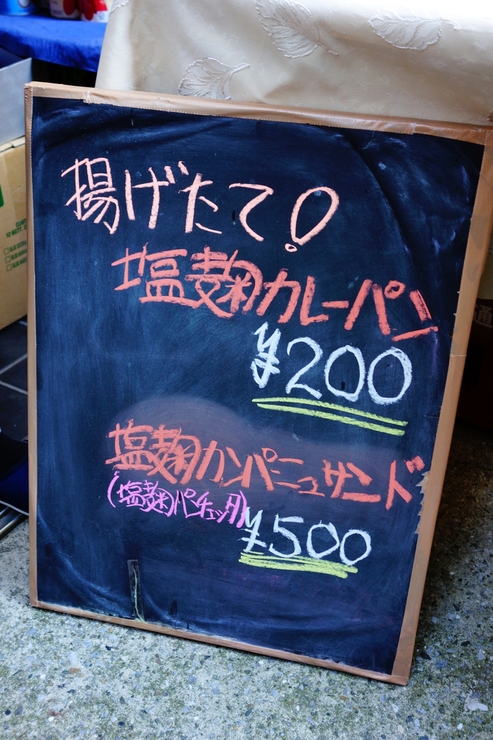 揚げたて!
塩麹カレーパン
¥200
塩麹カンパーニュサンド
(塩麹パンチェッタ)
¥500